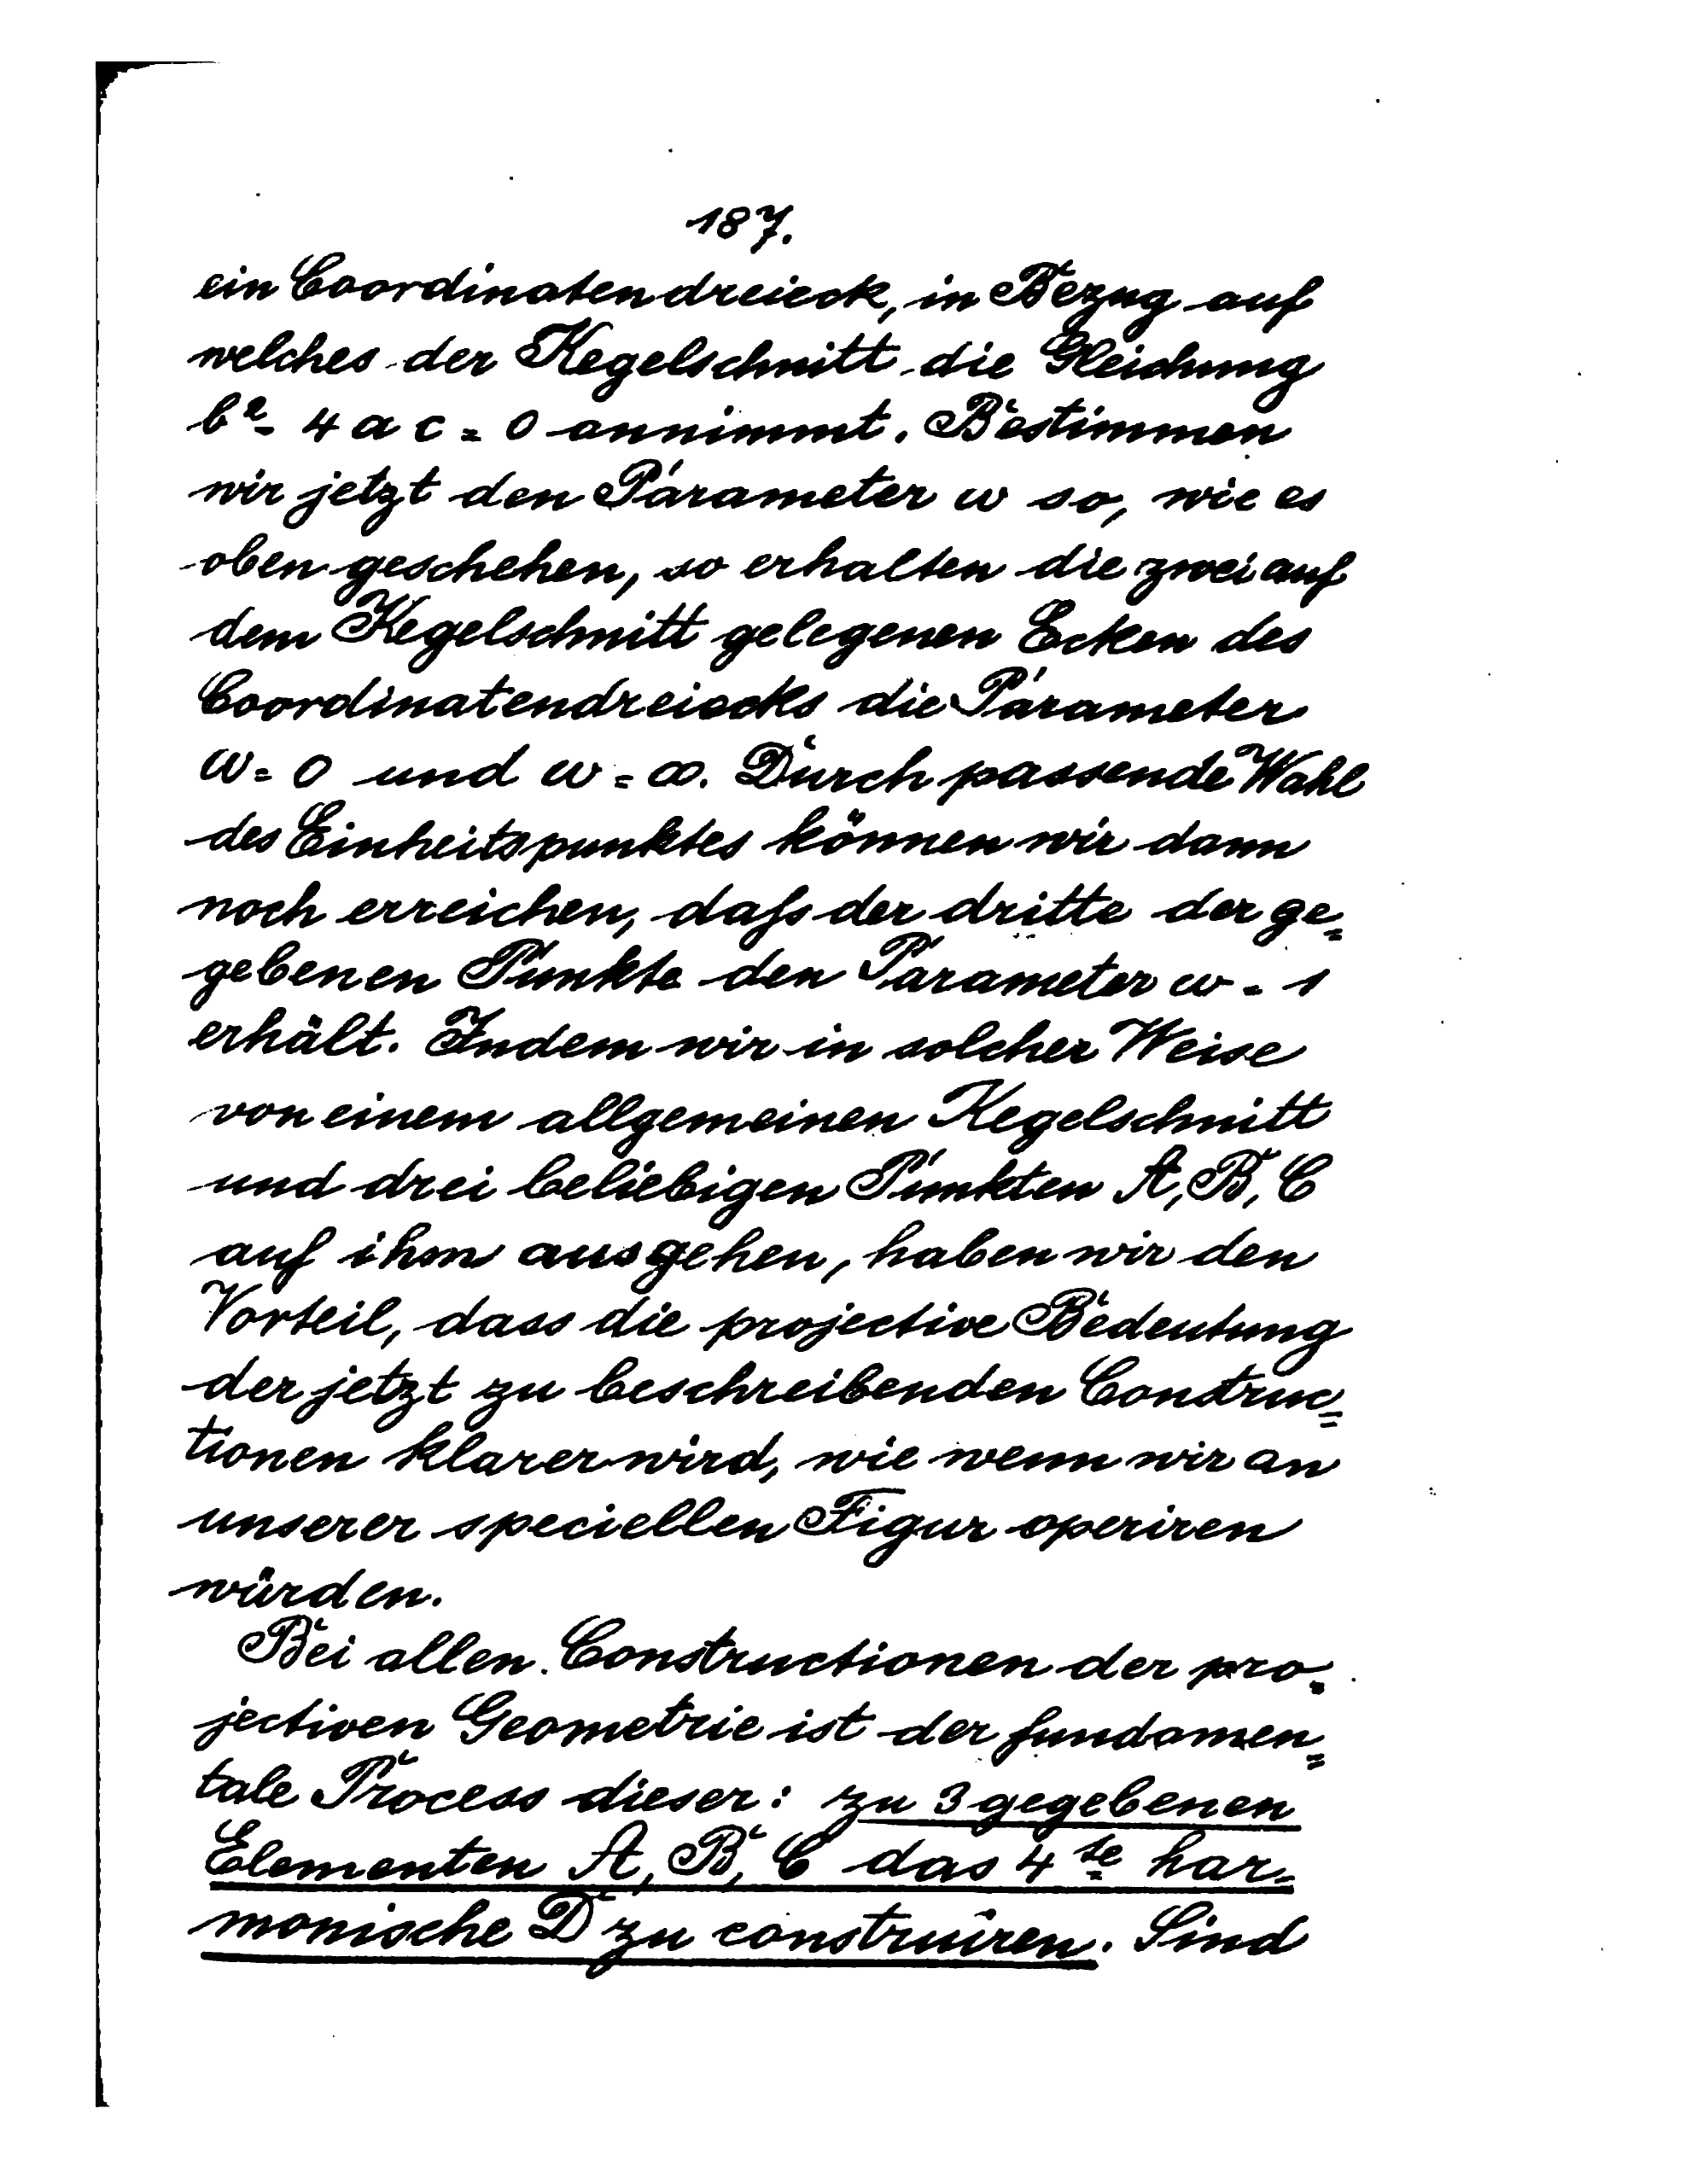 187.
ein Coordinatendreieck, in Bezug auf
welches der Kegelschnitt die Gleichung
b² - 4 a c = 0 annimmt. Bestimmen
wir jetzt den Parameter ω so, wie es
oben geschehen, so erhalten die zwei auf
dem Kegelschnitt gelegenen Ecken des
Coordinatendreiecks die Parameter
ω = 0 und ω = ∞. Durch passende Wahl
des Einheitspunktes können wir dann
noch erreichen, daſs der dritte der ge=
gebenen Punkte den Parameter ω = 1
erhält. Indem wir in solcher Weise
von einem allgemeinen Kegelschnitt
und drei beliebigen Punkten A, B, C
auf ihm ausgehen, haben wir den
Vorteil, dass die projective Bedeutung
der jetzt zu beschreibenden Construc=
tionen klarer wird, wie wenn wir an
unserer speciellen Figur operiren
würden.
Bei allen Constructionen der pro=
jectiven Geometrie ist der fundamen=
tale Process dieser: zu 3 gegebenen
Elementen A, B, C das 4te har=
monische D zu construiren. Sind